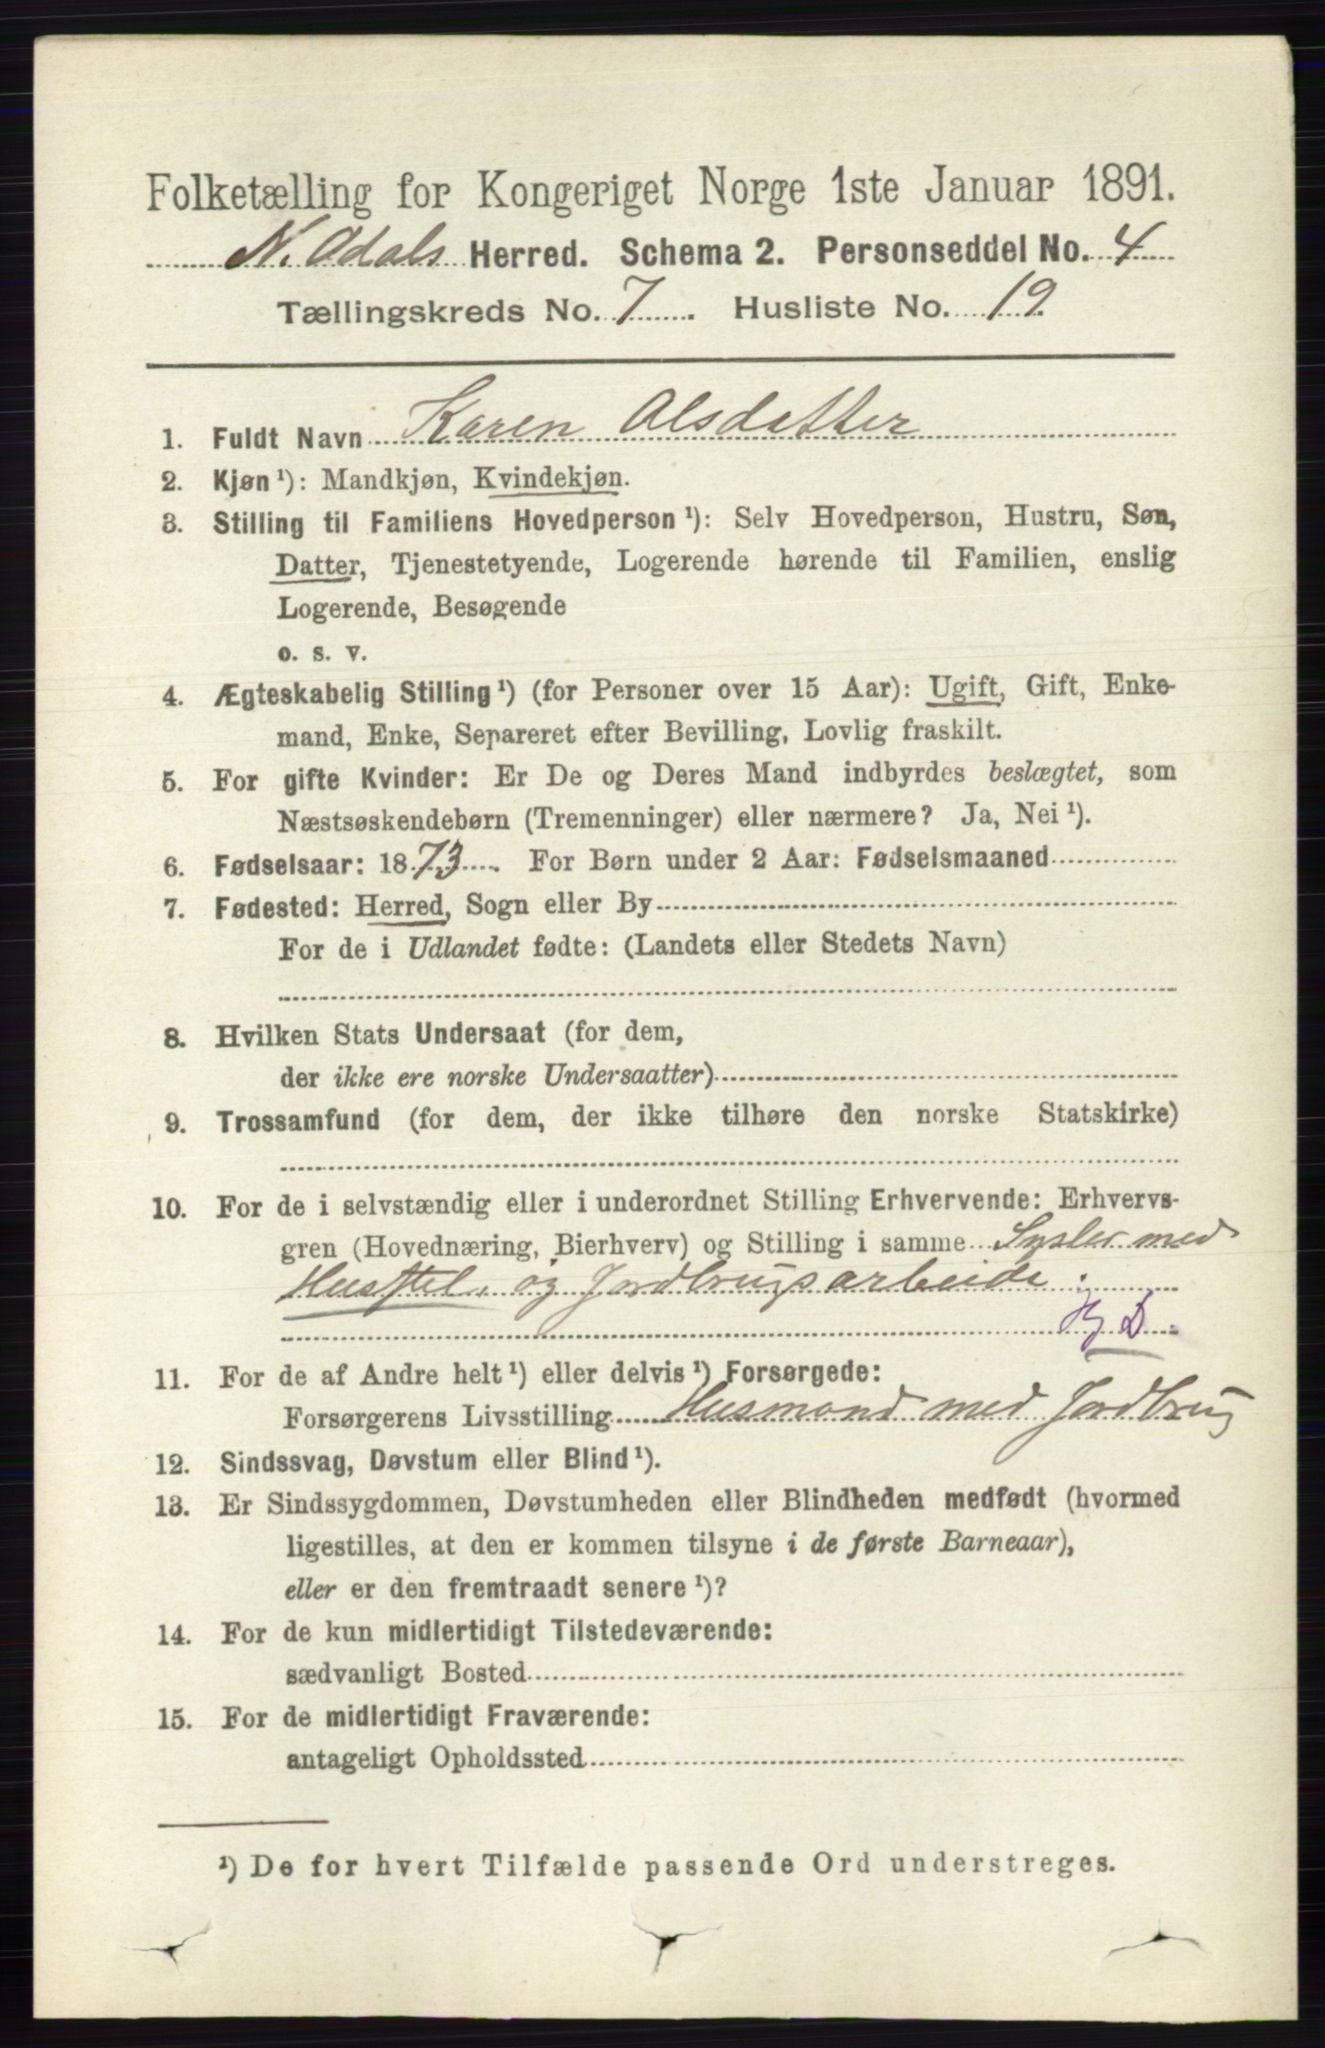 Folketælling for Kongeriget Norge 1ste Januar 1891.
N. Odals Herred. Schema 2. Personseddel No. 4
Tællingskreds No. 7. Husliste No. 19.
1. Fuldt Navn Karen Olsdatter
2. Kjøn ¹): Mandkjøn, Kvindekjøn.
3. Stilling til Familiens Hovedperson ¹): Selv Hovedperson, Hustru, Søn,
Datter, Tjenestetyende, Logerende hørende til Familien, enslig
Logerende, Besøgende
o. s. v.
4. Ægteskabelig Stilling ¹) (for Personer over 15 Aar): Ugift, Gift, Enke-
mand, Enke, Separeret efter Bevilling, Lovlig fraskilt.
5. For gifte Kvinder: Er De og Deres Mand indbyrdes beslægtet, som
Næstsøskendebørn (Tremenninger) eller nærmere? Ja, Nei ¹).
6. Fødselsaar: 1873. For Børn under 2 Aar: Fødselsmaaned
7. Fødested: Herred, Sogn eller By
For de i Udlandet fødte: (Landets eller Stedets Navn)
8. Hvilken Stats Undersaat (for dem,
der ikke ere norske Undersaatter)
9. Trossamfund (for dem, der ikke tilhøre den norske Statskirke)
10. For de i selvstændig eller i underordnet Stilling Erhvervende: Erhvervs-
gren (Hovednæring, Bierhverv) og Stilling i samme Sysler med
Husstel. og Jordbrugsarbeide.
D.
11. For de af Andre helt ¹) eller delvis ¹) Forsørgede:
Forsørgerens Livsstilling Husmand med Jordbrug
12. Sindssvag, Døvstum eller Blind ¹).
13. Er Sindssygdommen, Døvstumheden eller Blindheden medfødt (hvormed
ligestilles, at den er kommen tilsyne i de første Barneaar),
eller er den fremtraadt senere ¹)?
14. For de kun midlertidigt Tilstedeværende:
sædvanligt Bosted
15. For de midlertidigt Fraværende:
antageligt Opholdssted
¹) De for hvert Tilfælde passende Ord understreges.